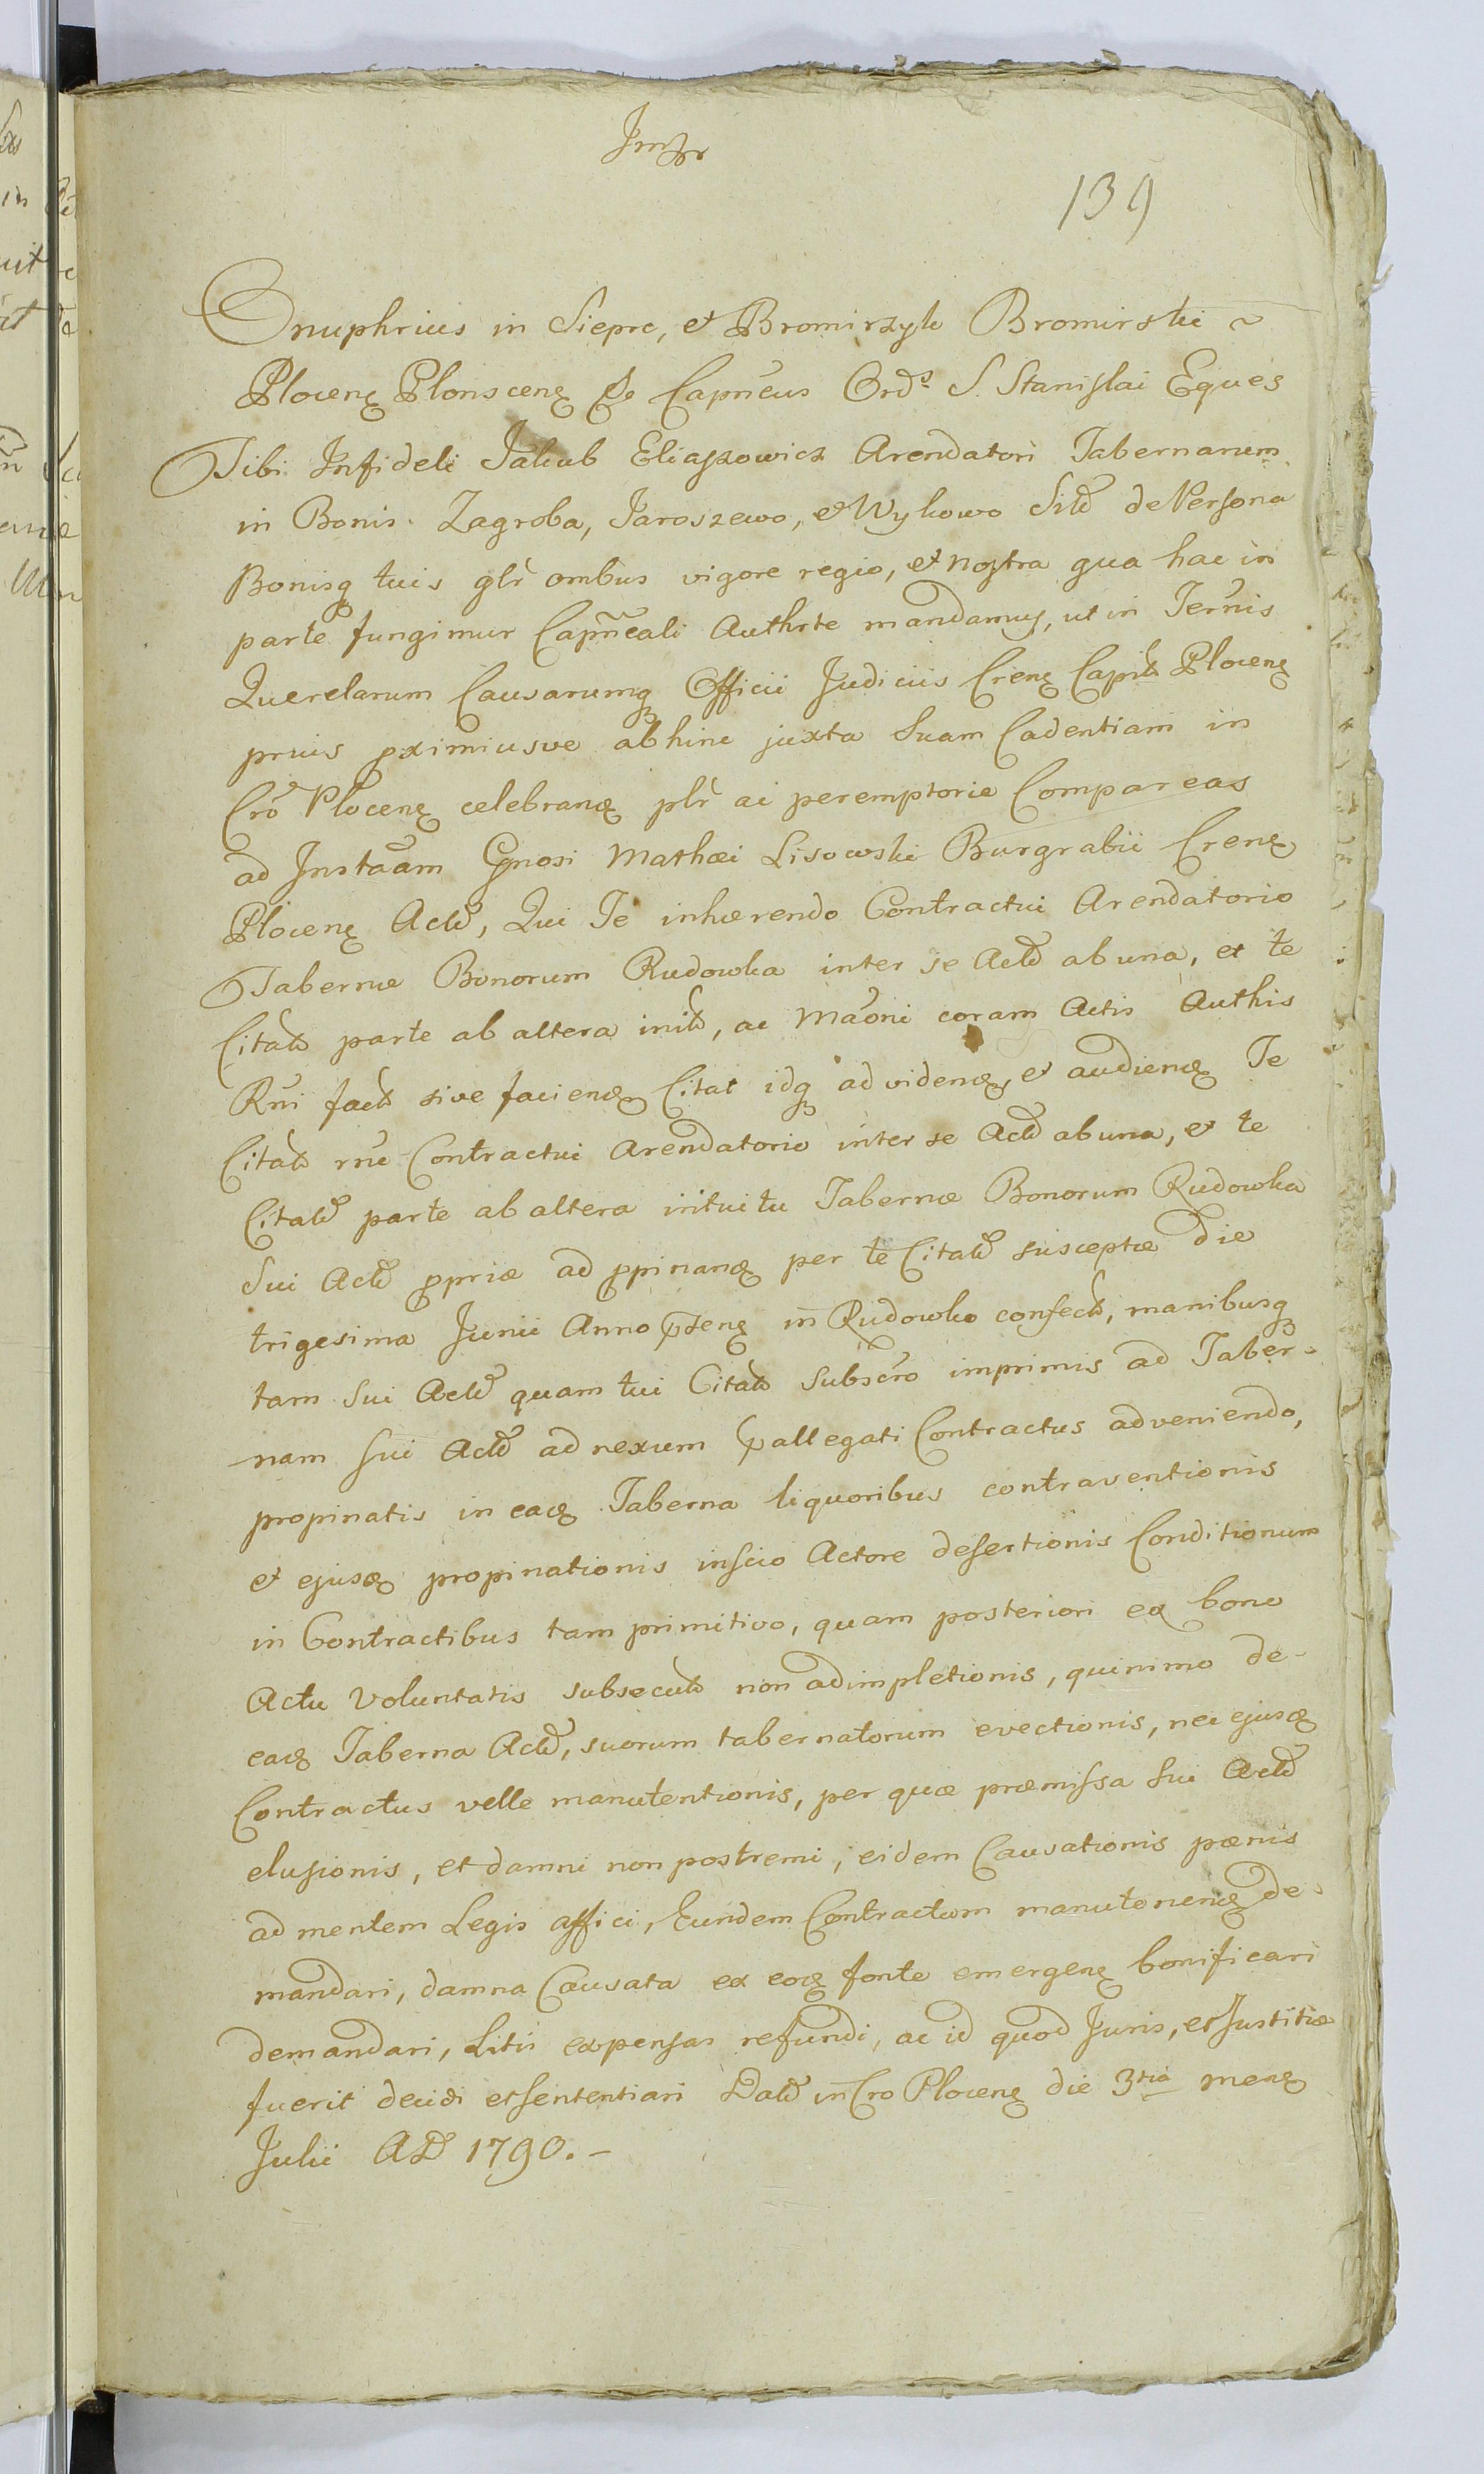 139
Onuphrius in Sieprc, et Bromirzyk Bromirski ~
Plocenę Plonscenę &c Capnēus Ordˢ S. Stanislai Eques
Tibi Infideli Jakub Eliaszowicz Arendatori Tabernarum
in Bonis Zagroba, Jaroszewo, et Wykowo Sitt de Persona
Bonisq tuis glr̃ ombus vigore regio, et nostra qua hac in
parte fungimur Capñeali Authrte mandamus, ut in Termis
Querelarum Causarumq Officii Judiciis Crenę Capit Plocenę
prius pximiusve abhinc juxta Suam Cadentiam in
Crō Plocenę celebrandę plr̃ ac peremptorie Compareas
ad Instāam Gnosi Mathæi Lisowski Burgrabii Crenę
Plocenę Actt, Qui Te inhærendo Contractui Arendatorio
Tabernæ Bonorum Rudowka inter se Actt ab una, et te
Citatt parte ab altera initt, ac Māoni coram Actis Authis
Rñi factt sive faciendę Citat idq ad videndę, et audiendę Te
Citatt rñe Contractui Arendatorio inter se Actt ab una, et te
Citatt parte ab altera intuitu Tabernæ Bonorum Rudowka
Sui Actt ppriæ ad ppinandę per te Citatt susceptæ die
trigesima Junii Anno pñtenę in Rudowko confectt, manibusq
tam Sui Actt quam tui Citatt Subscrō imprimis ad Taber-
nam Sui Actt ad nexum pallegati Contractus adveniendo,
propinatis in eadę Taberna liquoribus contraventionis
et ejusdę propinationis inscio Actore desertionis Conditionum
in Contractibus tam primitivo, quam posteriori ex bono
Actu Voluntatis subsecutt non adimpletionis, quinimo de-
eadę Taberna Actt, suorum tabernatorum evectionis, nec ejusdę
Contractus velle manutentionis, per quæ præmissa Sui Actt
elusionis, et damni non postremi, eidem Causationis pænis
ad mentem Legis affici, Eundem Contractum manutenendę de-
mandari, damna Causata ex eodę fonte emergenę bonificari
demandari, Litis expensas refundi, ac id quod Juris, et Justitiæ
fuerit decidi et sententiari Datt in Cro Plocenę die 3tia menę
Julii AD 1790. –